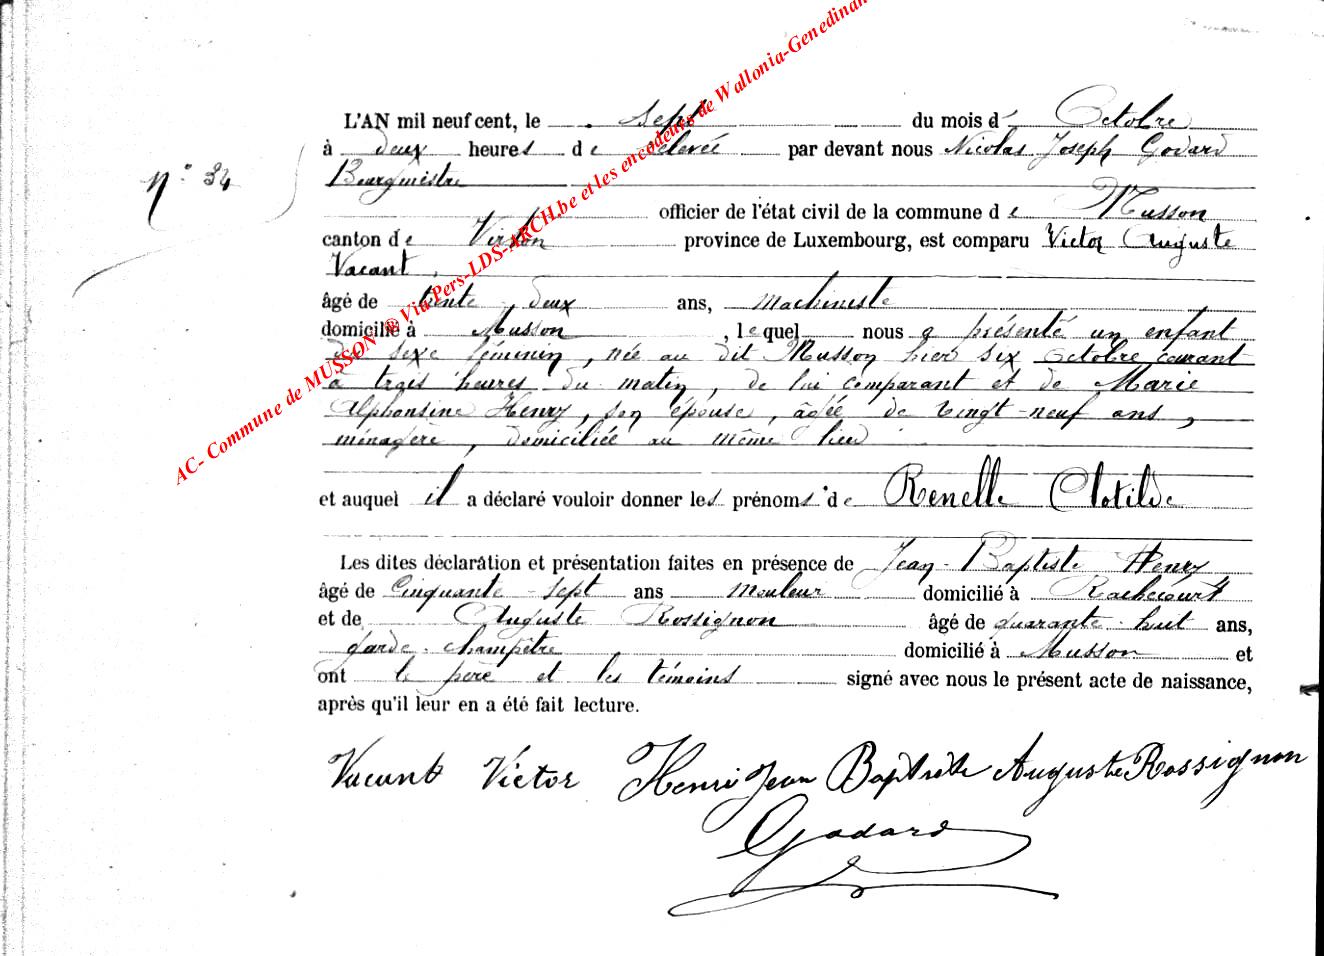 L'AN mil neuf cent, le sept du mois d' Octobre
à deux heures de relevée par devant nous Nicolas Joseph Godard
n° 34
Bourgmistre
officier de l'état civil de la commune de Musson
canton de Virton province de Luxembourg, est comparu Victor Auguste
Vacant,
âgé de trente-deux ans, machiniste
domicilié à Musson, lequel nous a présenté un enfant
du sexe féminin, née au dit Musson hier six Octobre courant
à trois heures du matin, de lui comparant et de Marie
Alphonsine Henry, son épouse, âgée de vingt-neuf ans,
ménagère, domiciliée au même lieu
et auquel il a déclaré vouloir donner les prénoms de Renelle Clotilde
Les dites déclaration et présentation faites en présence de Jean-Baptiste Henry
âgé de Cinquante-sept ans mouleur domicilié à Rachecourt
et de Auguste Rossignon âgé de quarante-huit ans,
garde-champêtre domicilié à Musson et
ont le père et les témoins signé avec nous le présent acte de naissance,
après qu'il leur en a été fait lecture.
Vacant Victor Henri Jean Baptiste Auguste Rossignon
Godard
AC- Commune de MUSSON ® Via Pers-LDS-ARCH.be et les encodeurs de Wallonia-Genedinan